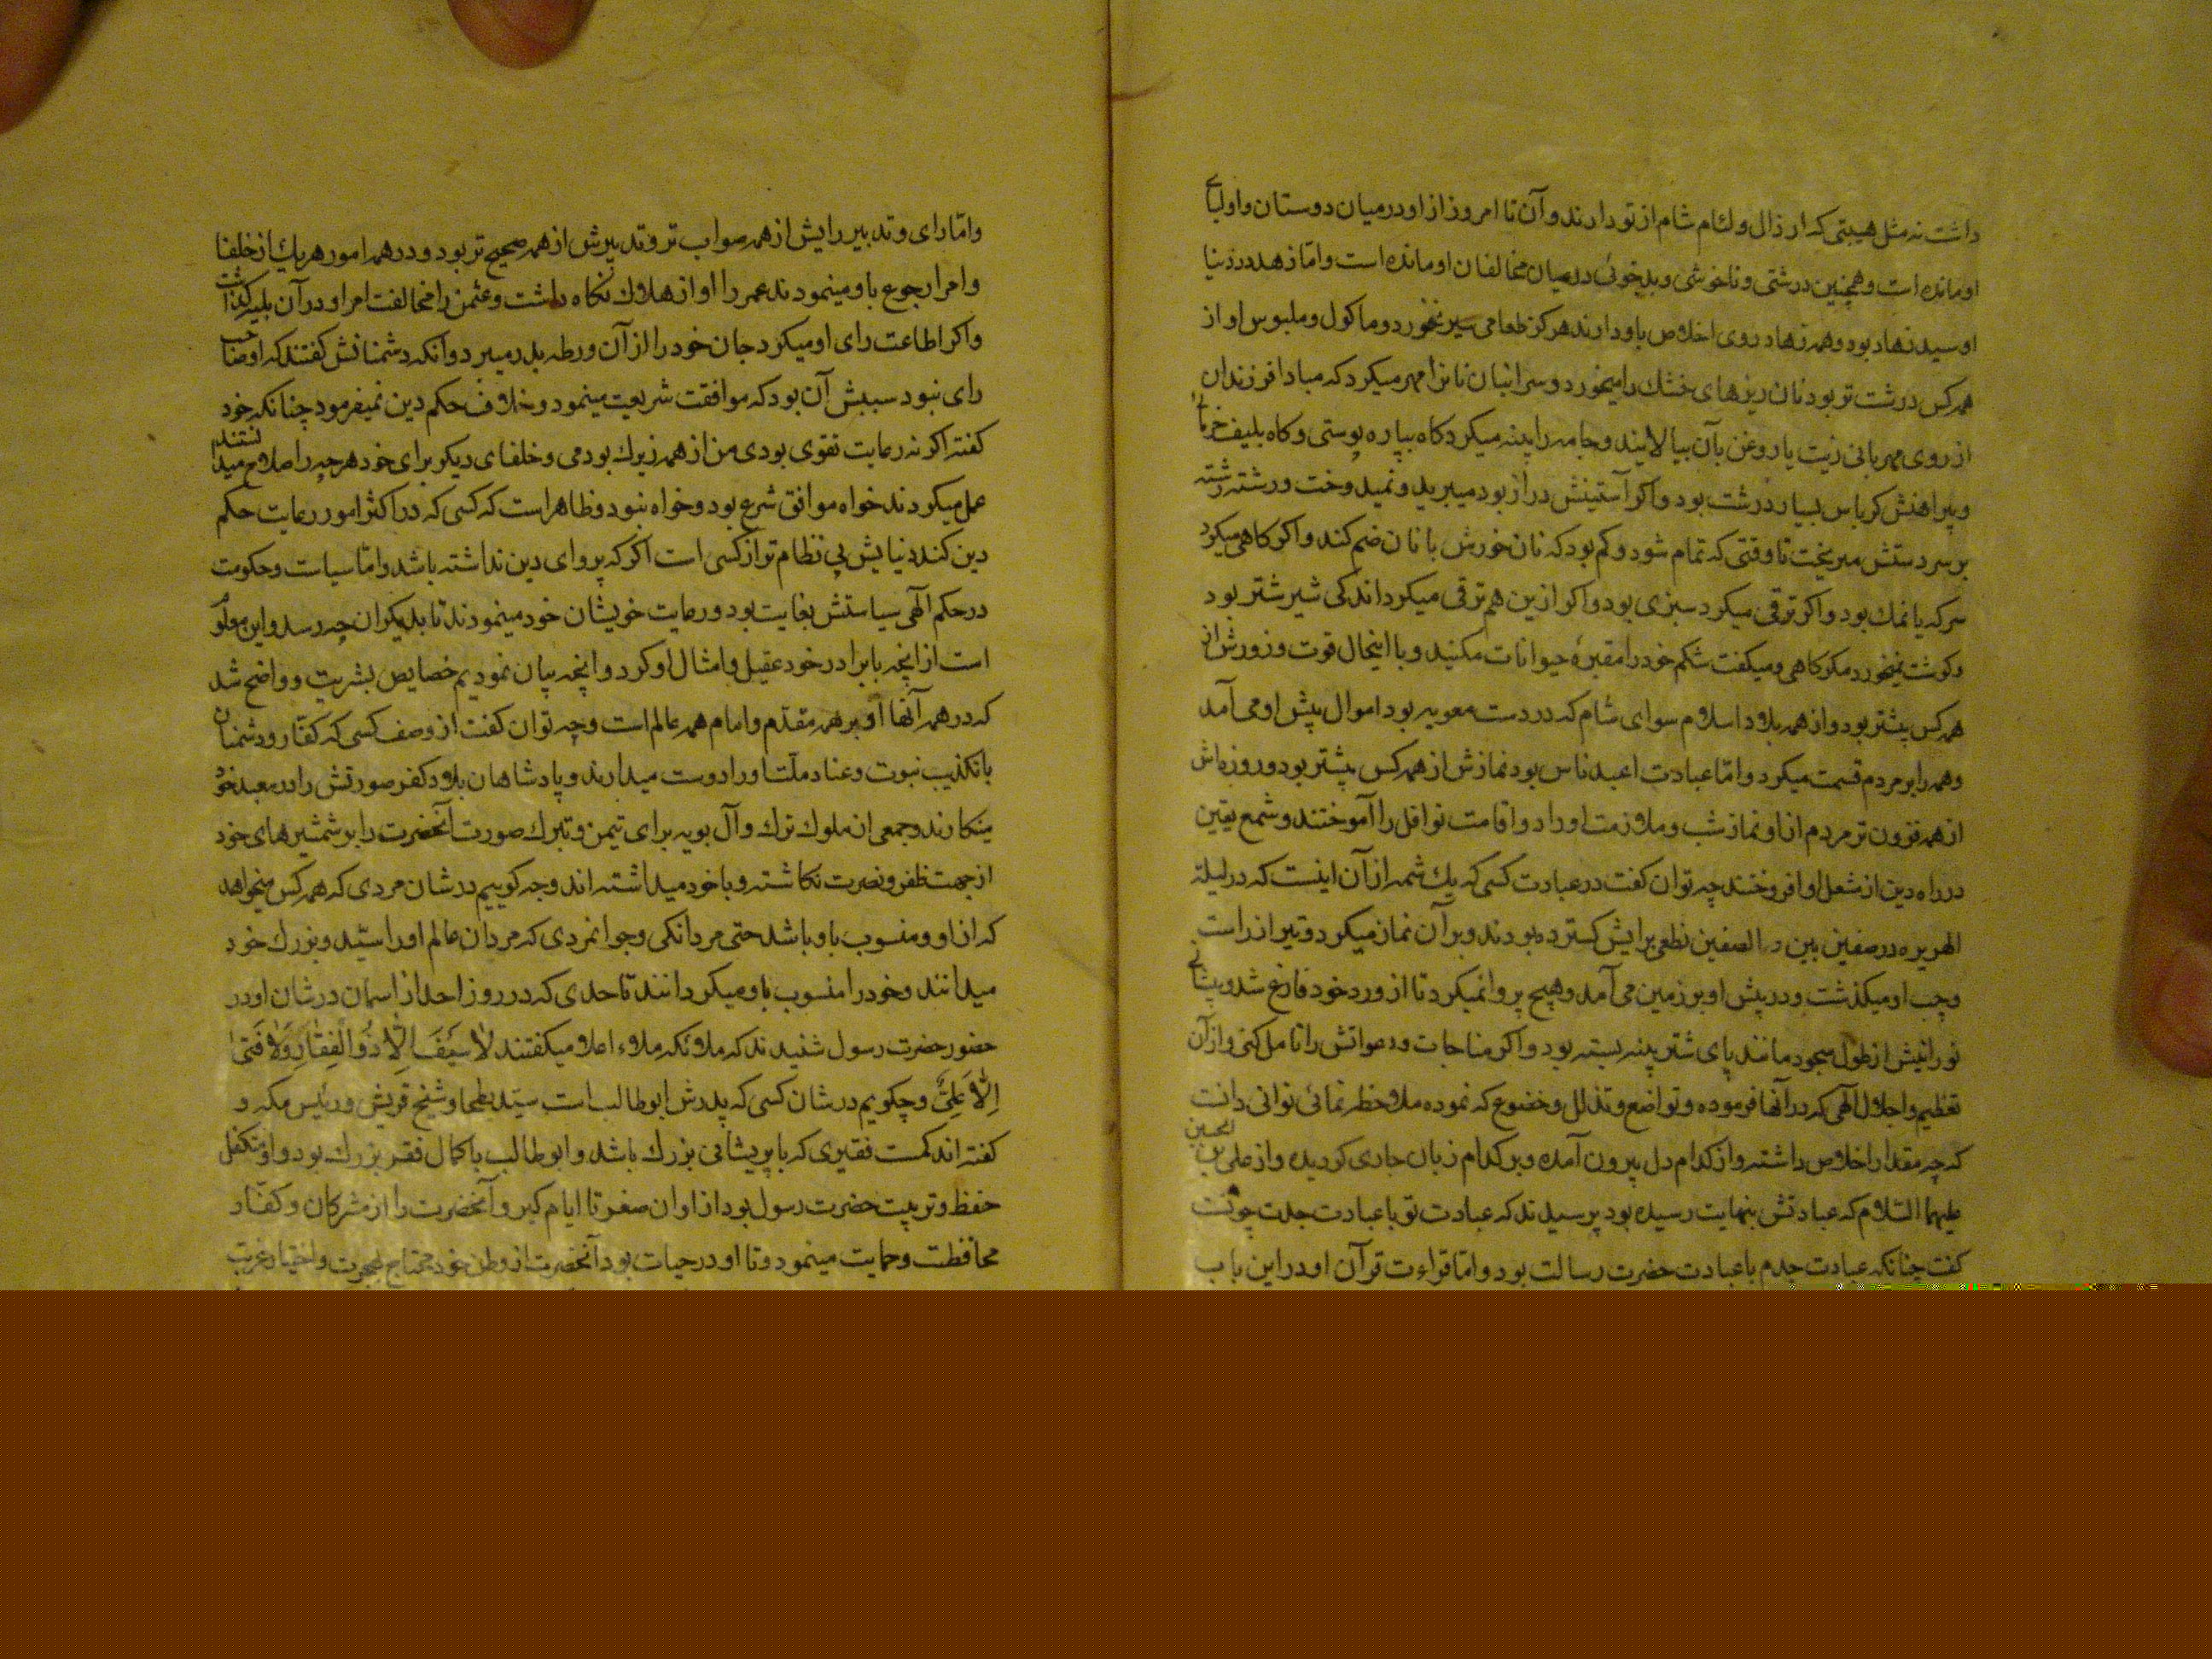 داشت نه مثل هیبتی که ارذال و لئام شام از تو دارند و آن تا امروز از او در میان دوستان و اولیاے
او مانده است و همچنین درشتی و ناخوشی و بدخوئی در میان مخالفان او مانده است و اما زهد در دنیا
او سید زهاد بود و همه زهاد روی اخلاص باو دارند هرکز طعامی سیر نخورد و ماکول و ملبوس او از
همه کس درشت تر بود نان ریزهای خشك را میخورد و سر انبان نانرا مهر میکرد که مبادا فرزندان
از روی مهربانی زیت یا روغن بآن بیالایند و جامه را پینه میکرد کاه بپاره پوستی و کاه بلیف خرما
و پیراهنش کرباس بسیار درشت بود و اکر آستینش دراز بود میبرید و نمیدوخت و رشته رشته
بر سر دستش میریخت تا وقتی که تمام شود و کم بود که نان خورش با نان ضم کند و اکر کاهی میکرد
سرکه یا نمك بود و اکر ترقی میکرد سبزی بود و اکر ازین هم ترقی میکرد اندکی شیر شتر بود
و کوشت نمیخورد مکر کاهی و میکفت شکم خود را مقبرۀ حیوانات مکنید و با اینحال قوت و زورش از
همه کس بیشتر بود و از همه بلاد اسلام سوای شام که در دست معویه بود اموال پیش او می آمد
و همه را بر مردم قسمت میکرد و اما عبادت اعبد ناس بود نمازش از همه کس بیشتر بود و روزه اش
از همه فزون تر مردم از او نماز شب و ملازمت اوراد و اقامت نوافل را آموختند و شمع یقین
در راه دین از مشعل او افروختند چه توان کفت در عبادت کسی که یك شمه از آن اینست که در لیلة
الهریره در صفین بین الصفین نطعی برایش کسترده بودند و بر آن نماز میکرد و تیر از راست
و چپ او میکذشت و در پیش او بر زمین می آمد و هیچ پروا نمیکرد تا از ورد خود فارغ شد و پیشانے
نورانیش از طول سجود مانند پای شتر پینه بسته بود و اکر مناجات و دعواتش را تامل کنی و از آن
تعظیم و اجلال آلهی که در آنها فرموده و تواضع و تذلل و خضوع که نموده ملاحظه نمائی توانی دانست
که چه مقدار اخلاص داشته و از کدام دل بیرون آمده و بر کدام زبان جاری کردیده و از علی بن الحسین
علیهما السّلام که عبادتش بنهایت رسیده بود پرسیدند که عبادت تو با عبادت جدت چونست
کفت چنانکه عبادت جدم با عبادت حضرت رسالت بود و اما قراءت قرآن او در این باب
و امّا رای و تدبیر رایش از همه صواب تر و تدبیرش از همه صحیح تر بود و در همه امور هر یك از خلفا
و امرا رجوع باو مینمودند عمر را او از هلاك نکاه داشت و عثمن را مخالفت امر او در آن بلیه کذاشت
و اکر اطاعت رای او میکرد جان خود را از آن ورطه بدر میبرد و آنکه دشمنانش کفتند که او صاحب
رای نبود سببش آن بود که موافقت شریعت مینمود و خلاف حکم دین نمیفرمود چنانکه خود
کفته اکر نه رعایت تقوی بودی من از همه زیرك بودمی و خلفای دیکر برای خود هر چه را صلاح میدانستند
عمل میکردند خواه موافق شرع بود و خواه نبود و ظاهر است که کسی که در اکثر امور رعایت حکم
دین کند دنیایش بی نظام تر از کسی است اکر که پروای دین نداشته باشد و امّا سیاست و حکومت
در حکم آلهی سیاستش بغایت بود و رعایت خویشان خود مینمودند تا بدیکران چه رسد و این معلوم
است از انچه با برادر خود عقیل و امثال او کرد و انچه بیان نمودیم خصایص بشریت و واضح شد
که در همه آنها او بر همه مقدّم و امام همه عالم است و چه توان کفت از وصف کسی که کفار و دشمنان
با تکذیب نبوت و عناد ملّت او را دوست میدارند و پادشاهان بلاد کفر صورتش را در معبد خود
مینکارند و جمعی از ملوك ترك و آل بویه برای تیمن و تبرك صورت آنحضرت را بر شمشیرهای خود
از جهت ظفر و نصرت نکاشته و با خود میداشته اند و چه کوییم در شان مردی که همه کس میخواهد
که از او و منسوب باو باشد حتی مردانکی و جوانمردی که مردان عالم او را سیّد و بزرك خود
میدانند و خود را منسوب باو میکردانند تا حدی که در روز احد از اسمان در شان او در
حضور حضرت رسول شنیدند که ملائکه ملاء اعلا میکفتند لا سَیفَ اِلّا ذُو الْفِقَارِ وَلا فَتیٰ
اِلّا عَلِیٌّ و چکویم در شان کسی که پدرش ابو طالب است سیّد بطحا و شیخ قریش و رئیس مکه و
کفته اند کمست فقیری که با پریشانی بزرك باشد و ابو طالب با کمال فقر بزرك بود و او متکفل
حفظ و تربیت حضرت رسول بود از اوان صغر تا ایام کبر و آنحضرت را از مشرکان و کفار
محافظت و حمایت مینمود و تا او در حیات بود آنحضرت از وطن خود محتاج بهجرت و اختیار غربت